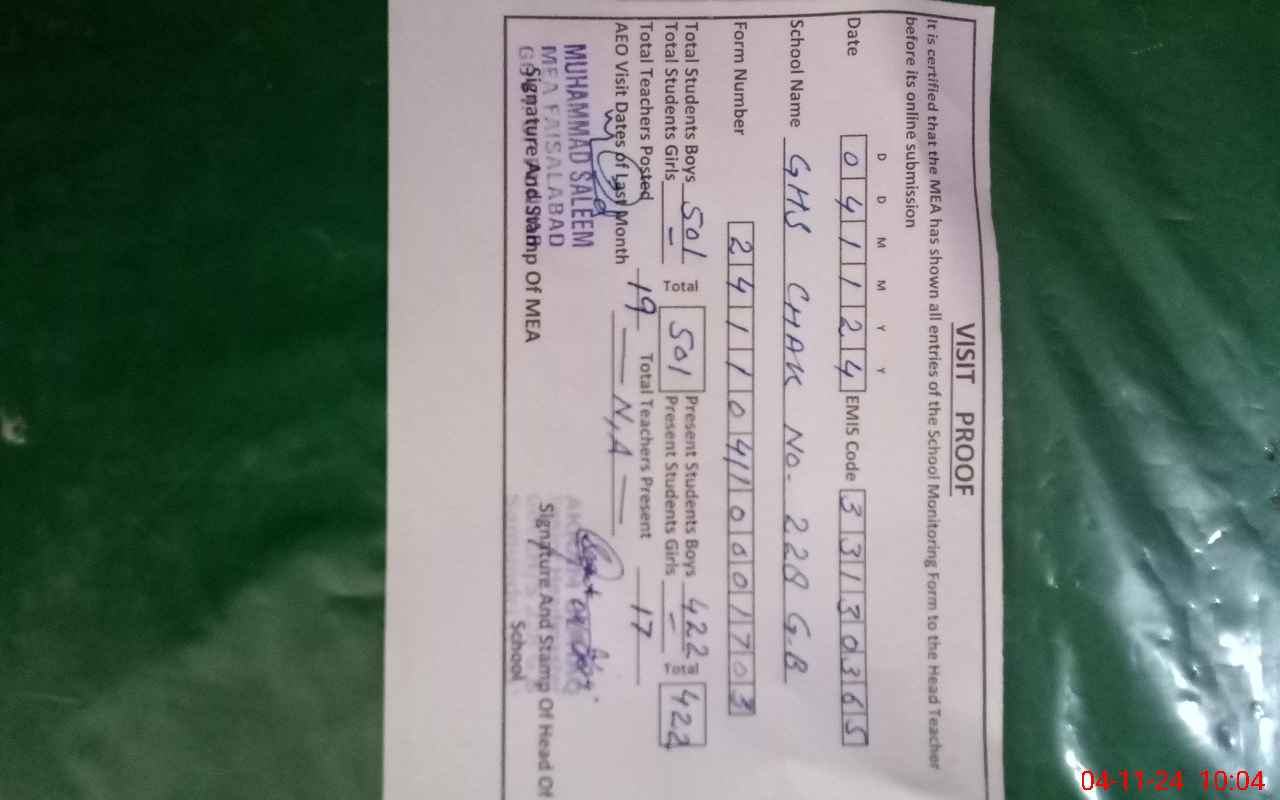 VISIT PROOF
It is certified that the MEA has shown all entries of the School Monitoring Form to the Head Teacher
before its online submission
D D M M Y Y
Date 041124 EMIS Code 33130365
School Name GHS CHAK NO. 228 G.B
Form Number 241104100001703
Total Students Boys 501 Total 501 Present Students Boys 422 Total 422
Total Students Girls - Present Students Girls -
Total Teachers Posted 19 Total Teachers Present 17
AEO Visit Dates of Last Month — N,A —
MUHAMMAD SALEEM
MEA FAISALABAD
Signature And Stamp Of MEA
Signature And Stamp Of Head Of
School
04-11-24 10:04